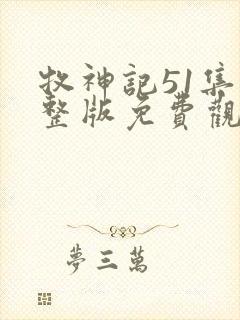 牧神記51集
整版免費觀
夢三萬